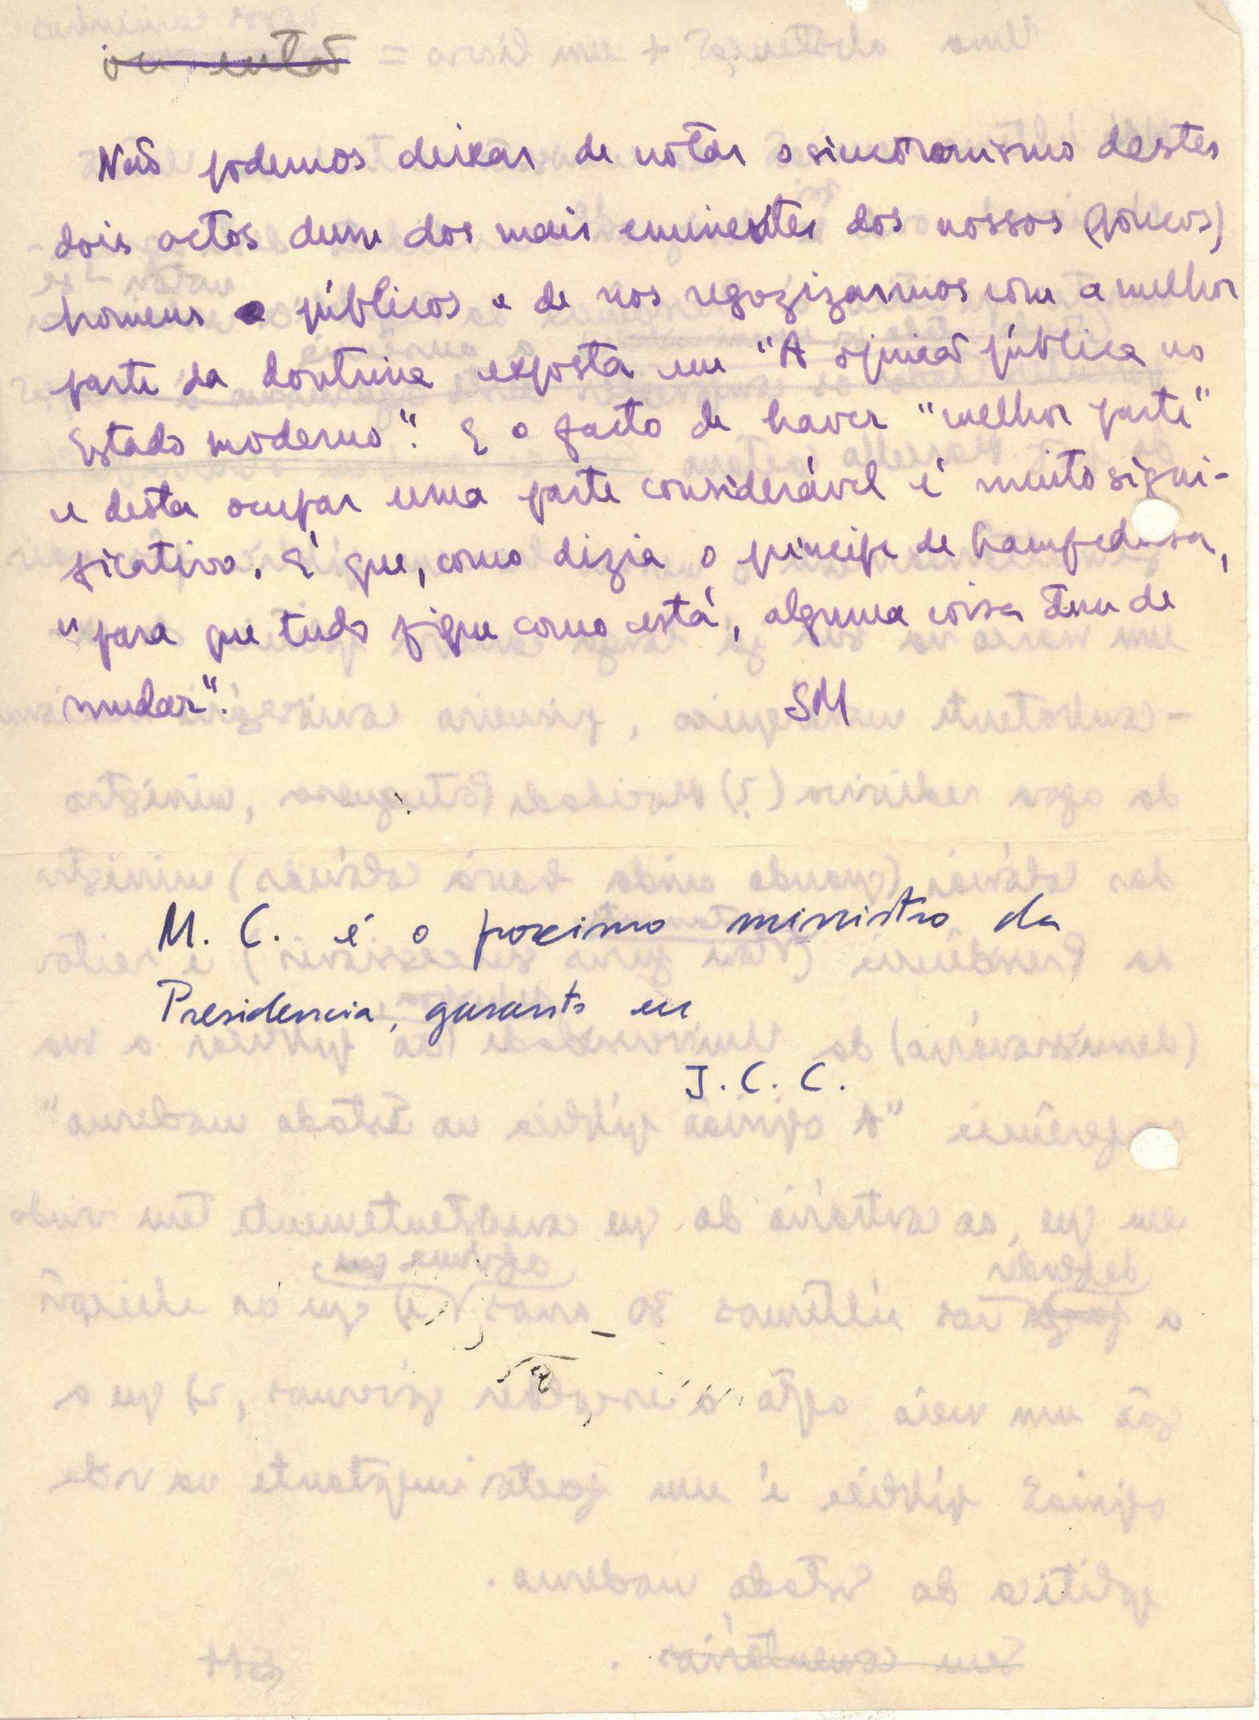 Não podemos deixar de notar o sincronismo destes
dois actos dum dos mais eminentes dos nossos (poucos)
homens públicos e de nos regozizarmos com a melhor
parte da doutrina exposta em "A opinião pública no
Estado moderno". E o facto de haver "melhor parte"
e desta ocupar uma parte considerável é muito signi-
ficativo. É que, como dizia o príncipe de Lampedusa,
"para que tudo fique como está, alguma coisa tem de
mudar".
SM
M. C. é o proximo ministro da
Presidencia, garanto eu
J. C. C.